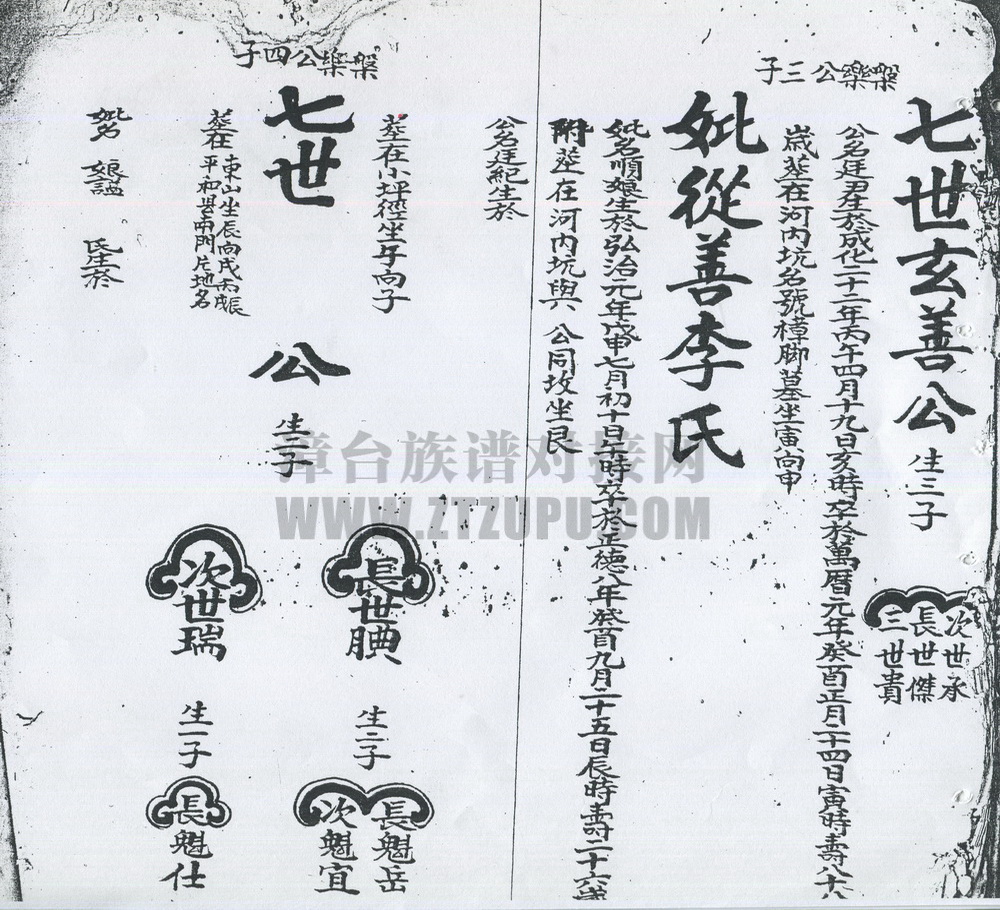 槃樂公三子
七世玄善公 生三子
次世承
長世傑
三世貴
公名廷尹生於成化二十二年丙午四月十九日亥時卒於萬曆元年癸酉正月二十四日寅時壽八十八
歲葬在河內坑名號樟脚墓坐寅向申
妣從善李氏
妣名順娘生於弘治元年戊申七月初十日午時卒於正德八年癸酉九月二十五日辰時壽二十六歲
附葬在河內坑與 公同坟坐艮
槃樂公四子
公名廷紀生於
葬在小坪徑坐午向子
七世 公 生子
長世腆 生二子
長魁岳
次魁宜
次世瑞 生一子
長魁仕
葬在
東山坐辰向戌
平和邑南門片地名
妣名 娘諡 氏生於
漳台族谱对接网
WWW.ZTZUPU.COM